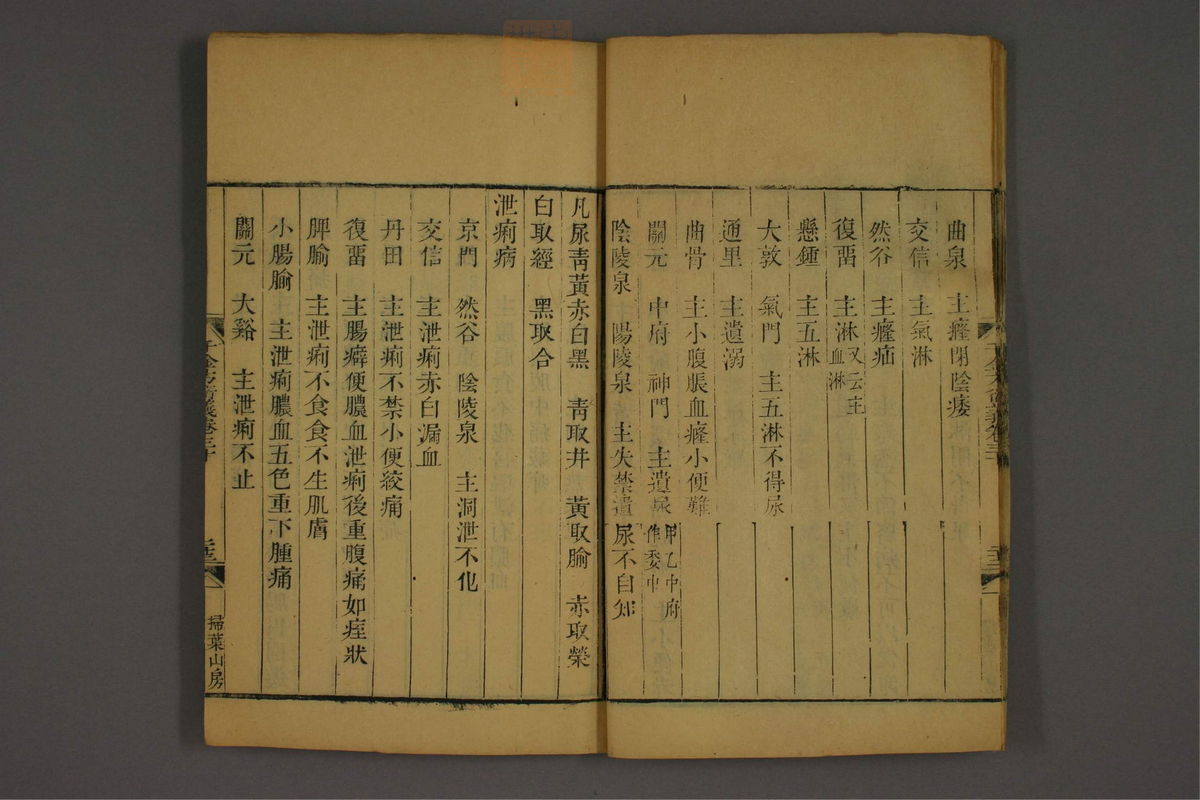 曲泉　主癃閉陰痿
交信　主氣淋
然谷　主癃疝
復畱　主淋又云主血淋
懸鍾　主五淋
大敦　氣門　主五淋不得尿
通里　主遺溺
曲骨　主小腹脹血癃小便難
關元　中府　神門　主遺尿甲乙中府作委中
陰陵泉　陽陵泉　主失禁遺尿不自知
凡尿青黃赤白黑　青取井　黃取腧　赤取滎
白取經　黑取合
泄痢病
京門　然谷　陰陵泉　主洞泄不化
交信　主泄痢赤白漏血
丹田　主泄痢不禁小便絞痛
復畱　主腸癖便膿血泄痢後重腹痛如痓狀
脾腧　主泄痢不食食不生肌膚
小腸腧　主泄痢膿血五色重下腫痛
關元　大谿　主泄痢不止
千金方衍義卷三十
掃葉山房